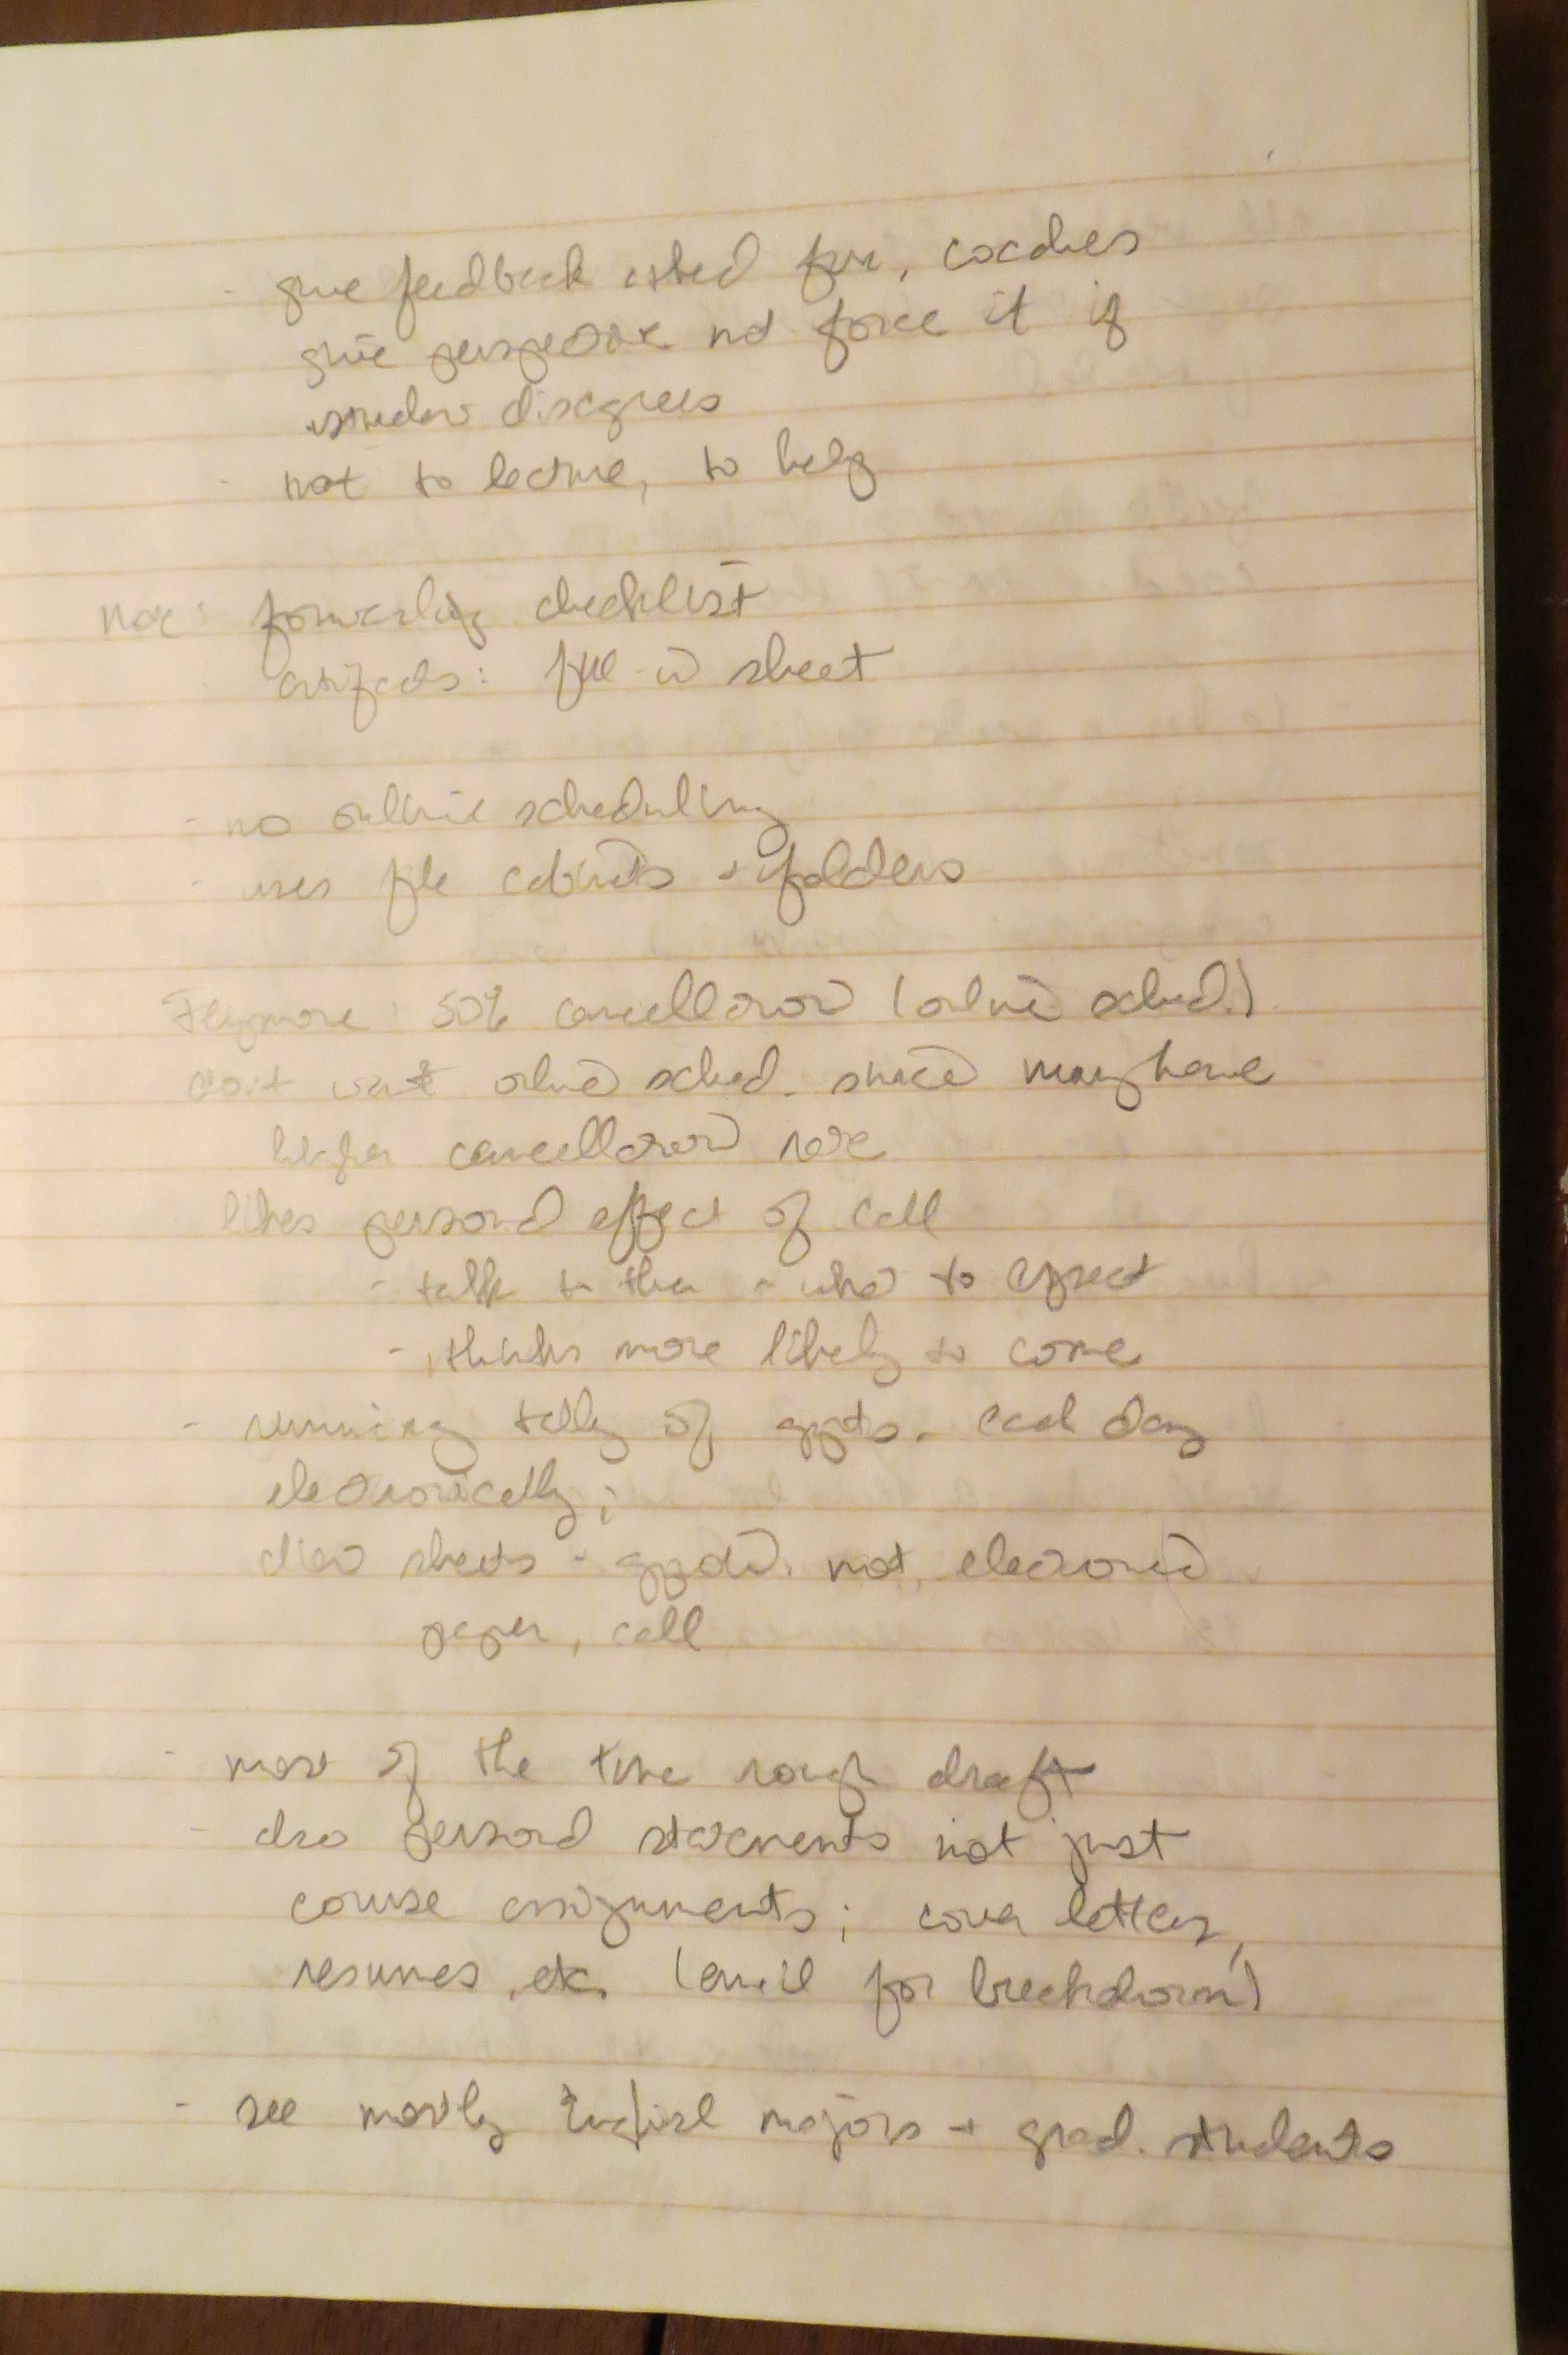 - give feedback asked for, coaches
give perspective not force it if
student disagrees
- not to lecture, to help
note: checklist
artifacts: fill in sheet
- no online scheduling
- uses file cabinets + folders
50% cancellation (online sched.)
don't want online sched. since may have
higher cancellation rate
likes personal effect of call
- talk to them - what to expect
- thinks more likely to come
- running tally of appts. each day
electronically;
client sheets - not electronic
paper, call
- most of the time rough draft
- also personal statements not just
course assignments; cover letters,
resumes, etc. (email for breakdown)
- see mostly English majors + grad. students